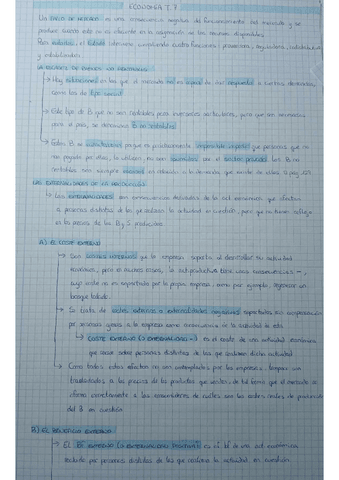 ECONOMÍA T.7
Un FALLO DE MERCADO es una consecuencia negativa del funcionamiento del mercado y se
produce cuando este no es eficiente en la asignación de los recursos disponibles.
Para evitarlos, el Estado interviene cumpliendo cuatro funciones: proveedora, reguladora, redistributiva
y estabilizadora.
→ Hay situaciones en las que el mercado no es capaz de dar respuesta a ciertas demandas,
como las de tipo social
→ Este tipo de B que no son rentables para inversores particulares, pero que son necesarias
para el país, se denominan B no rentables
→ Estos B se caracterizan porque es prácticamente imposible impedir que personas que no
han pagado por ellos, los utilicen, no son
LAS EXTERNALIDADES DE LA PRODUCCIÓN
→ Las EXTERNALIDADES son consecuencias derivadas de la act. económica que afectan
a personas distintas de las que realizan la actividad en cuestión, pero que no tienen reflejo
en los precios del B y S producidos.
A) EL COSTE EXTERNO
→ Son costes internos que la empresa soporta al desarrollar su actividad
económica, pero en muchos casos, la act. productiva tiene unas consecuencias -,
cuyo coste no es soportado por la propia empresa, como por ejemplo, regenerar un
bosque talado.
→ Se trata de costes externos o externalidades negativas soportados sin compensación
por personas ajenas a la empresa como consecuencia de la actividad de esta
→ COSTE EXTERNO (O EXTERNALIDAD -) es el coste de una actividad económica
que recae sobre personas distintas de las que realizan dicha actividad
→ Como todos estos efectos no son contemplados por las empresas, tampoco son
trasladados a los precios de los productos que venden, de tal forma que el mercado no
informa correctamente a los consumidores de cuáles son los costes reales de producción
del B en cuestión
B) EL BENEFICIO EXTERNO
→ El BE EXTERNO (O EXTERNALIDAD POSITIVA) es el B de una act. económica
recibido por personas distintas de las que realizan la actividad en cuestión